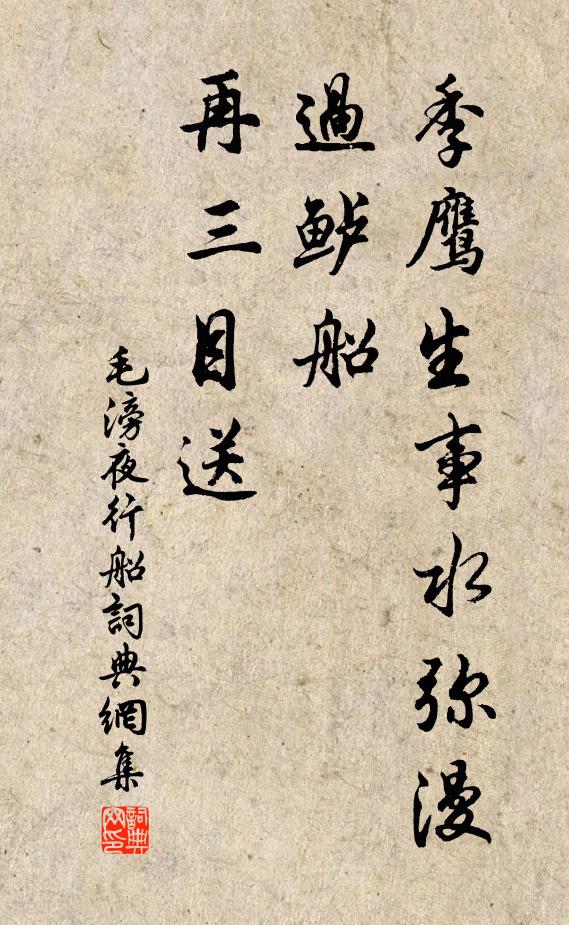 季鷹生事水弥漫
過鲈船
再三目送
毛滂夜行船詞典網集
詞典网印